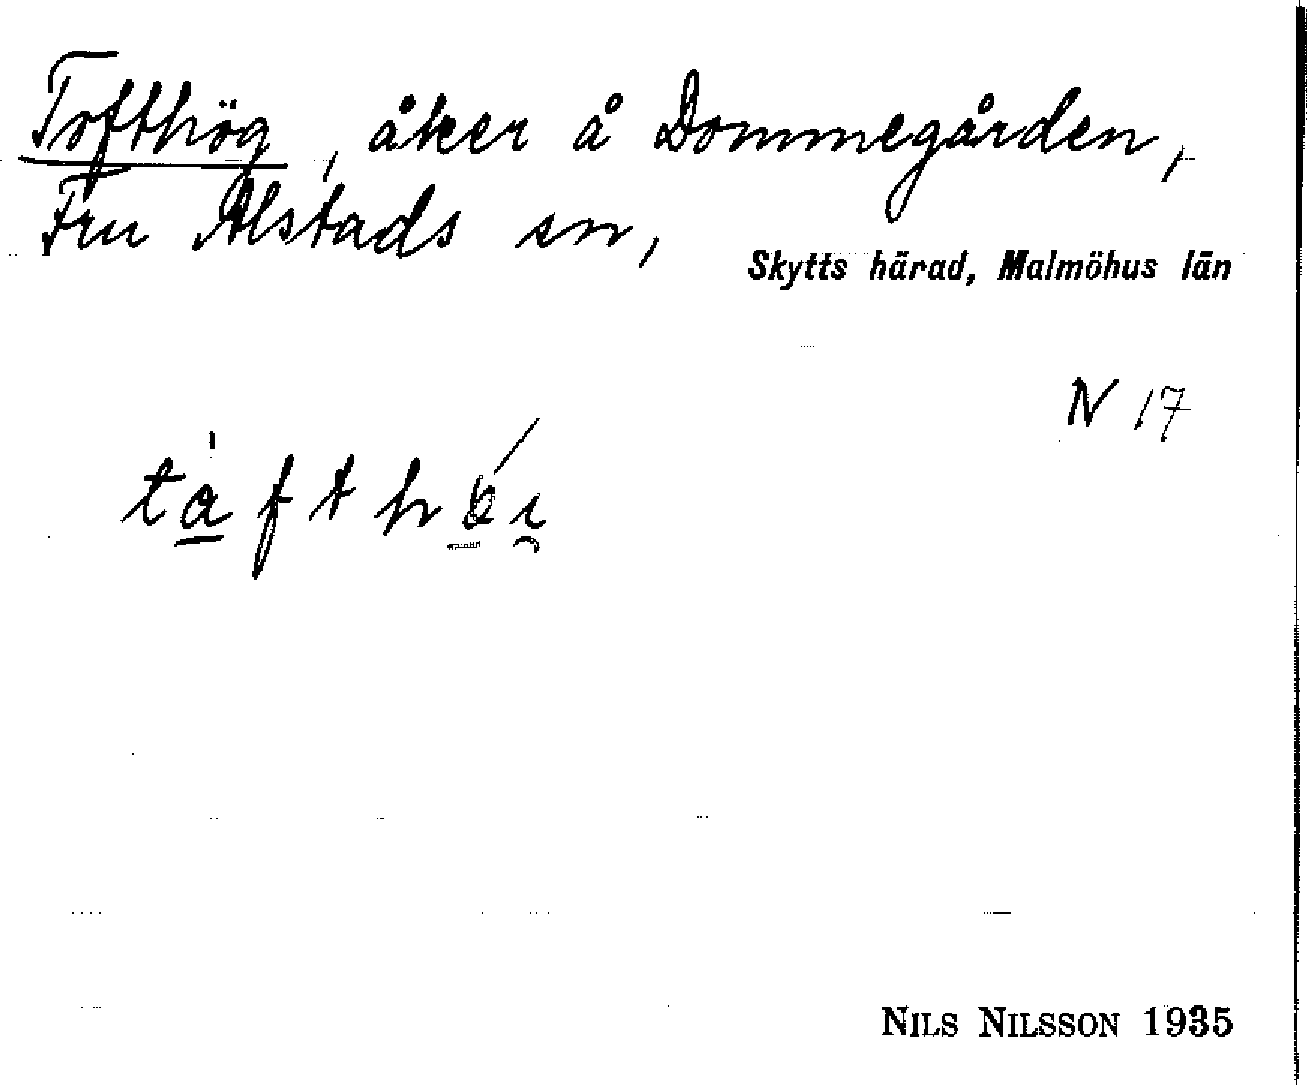 Tofthög, åker å Dommegården,
Fru Alstads sn,
Skytts härad, Malmöhus län
N 17
NILS NILSSON 1935